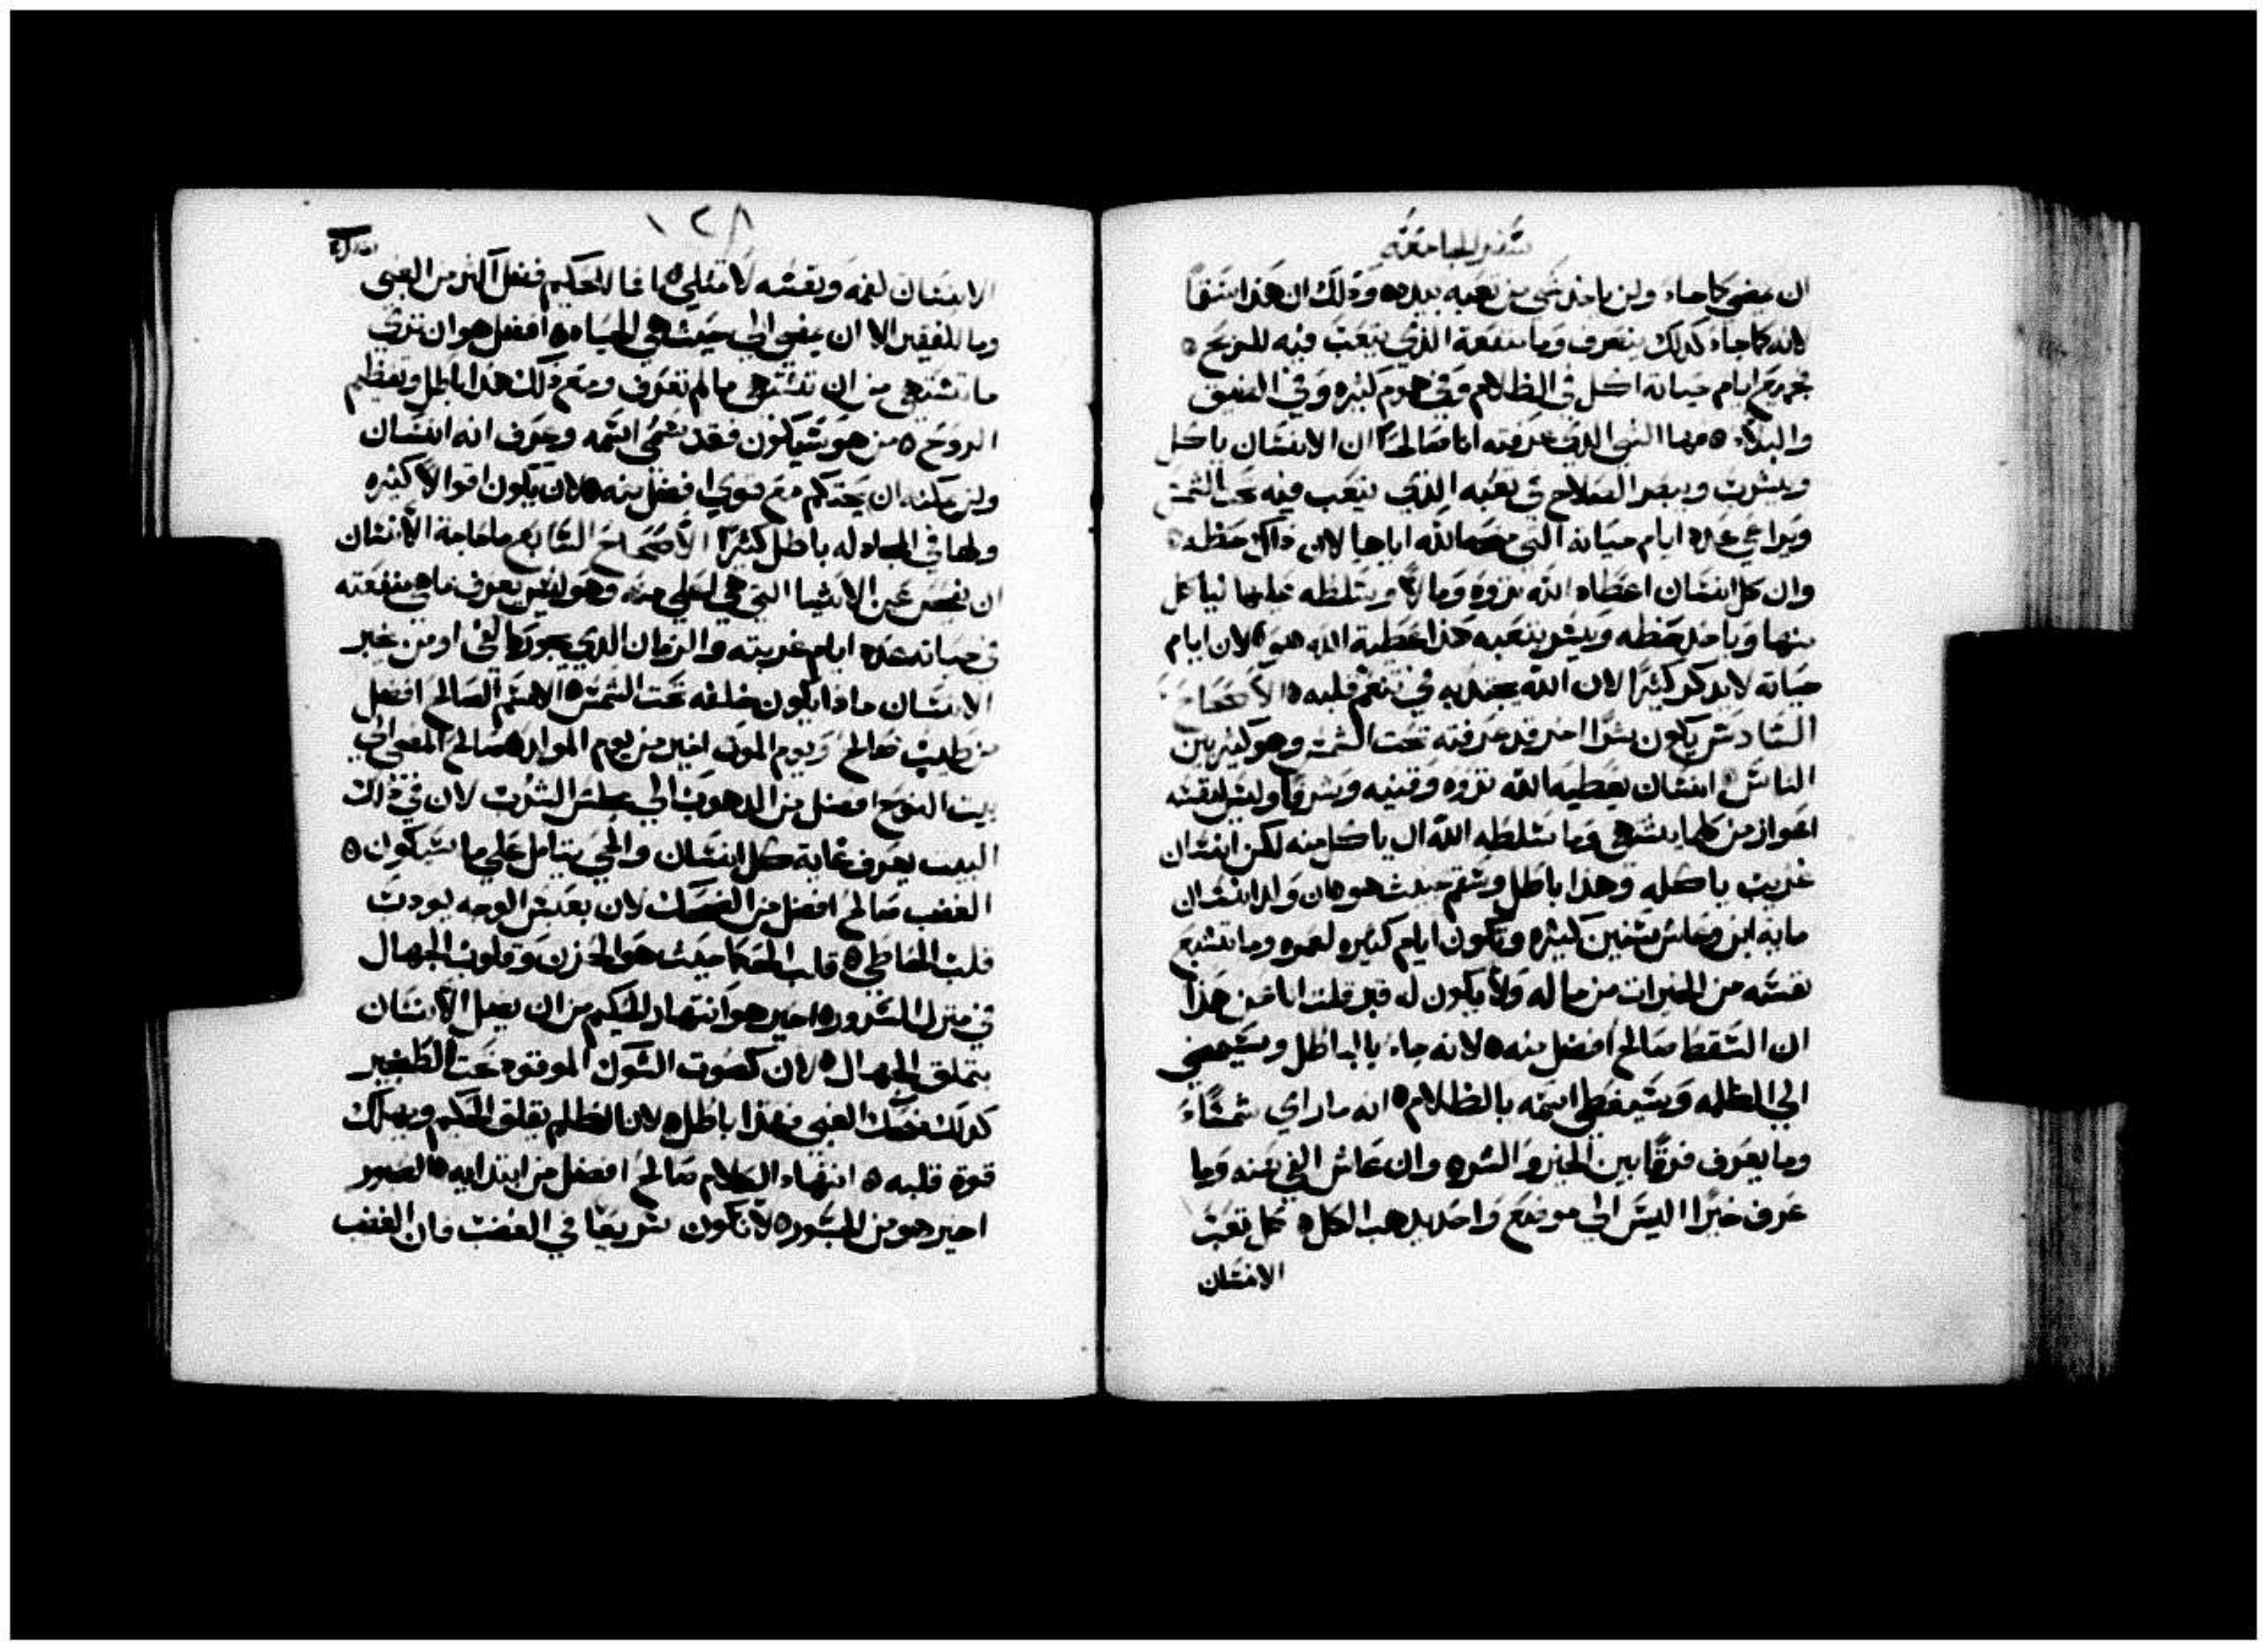 سفر الجامعه
ان يمضي كما جاء ولن ياخد شي من تعبه بيده وذلك ان هذا سقا
لانه كما جاء كدلك ينصرف وما منفعة الذي يتعب فيه للريح ه
جميع ايام حياته اكل في الظلام وفي هموم كثيره وفي الضيق
والبلاء ه فهدا الشي الذي عرفته انا صالحًا ان الانسان ياكل
ويشرب ويبصر الصلاح في تعبه الذي يتعب فيه تحت الشمس
ويراعي عدد ايام حياته التي منحه الله اياها لان ذاك حظه ه
وان كل انسان اعطاه الله ثروه ومالًا ويسلطه عليها لياكل
منها وياخد حظه ويسر بتعبه هذا عطية الله هو ه لان ايام
حياته لا يدكر كثيرًا لان الله يجدبه في تنعم قلبه ه الاصحاح
السادس يكون شرًا اخر قد عرفته تحت الشمس وهو كثير بين
الناس ه انسان يعطيه الله ثروه وقنيه وشرفًا وليس لنفسه
اعواز من كلما يشتهي وما سلطه الله ان ياكل منه لكن انسان
غريب ياكله وهذا باطل وسقم خبيث هو ه ان ولد انسان
مايه ابن وعاش سنين كثيره وتكون ايام كثيره لعمره وما تشبع
نفسه من الخيرات من ماله ولا يكون له قبر قلت انا عن هذا
ان السقط صالح افضل منه ه لانه جاء بالباطل وسيمضي
الي الظلمه وسيغطي اسمه بالظلام ه انه ما راي شمسًا
وما يعرف فرقًا بين الخير والشر ه وان عاش الفي سنه وما
عرف خيرًا اليس الي موضع واحد يدهب الكل ه كل تعب
الانسان
١٢٨
الانسان لفمه ونفسه لا تمتلي ه ما فضل الحكيم اكثر من الغبي
وما للفقير الا ان يمضي الي حيث هي الحياه ه افضل هو ان تري
ما تشتهي من ان تشتهي ما لم تعرف ومع ذلك هذا باطل وتعظيم
الروح ه من هو سيكون فقد سمي اسمه وعرف انه انسان
ولن يمكنه ان يحتكم مع قوي افضل منه ه لان يكون اقوالًا كثيره
ولها في المجادله باطل كثيرًا الاصحاح السابع ما حاجة الانسان
ان يفحص عن الاشيا التي هي اعلي منه وهو ليس يعرف ما هي منفعته
في حياته عدد ايام غربته والزمان الذي يجوز كالفي او من يخبر
الانسان ماذا يكون خلفه تحت الشمس ه الاسم الصالح افضل
من طيب صالح ويوم الموت اخير من يوم المولد ه صالح المضي الي
بيت النوح افضل من الدهوب الي مجلس الشرب لان في ذلك
البيت يعرف غاية كل انسان والحي يتامل علي ما سيكون ه
الغضب صالح افضل من الضحك لان بعبس الوجه يودب
قلب الخاطي ه قلب الحكما حيث هو الحزن وقلوب الجهال
في منزل السرور ه اخير هو انتهار الحكيم من ان يضل الانسان
بتملق الجهال ه لان كصوت الشوك الموقود تحت الطنجير
كدلك ضحك الغبي وهذا باطل ه لان الظلم يقلق الحكيم ويهلك
قوة قلبه ه انتهاء الكلام صالح افضل من ابتدايه ه الصبور
اخير هو من الجسور ه لا تكون سريعًا في الغضب فان الغضب